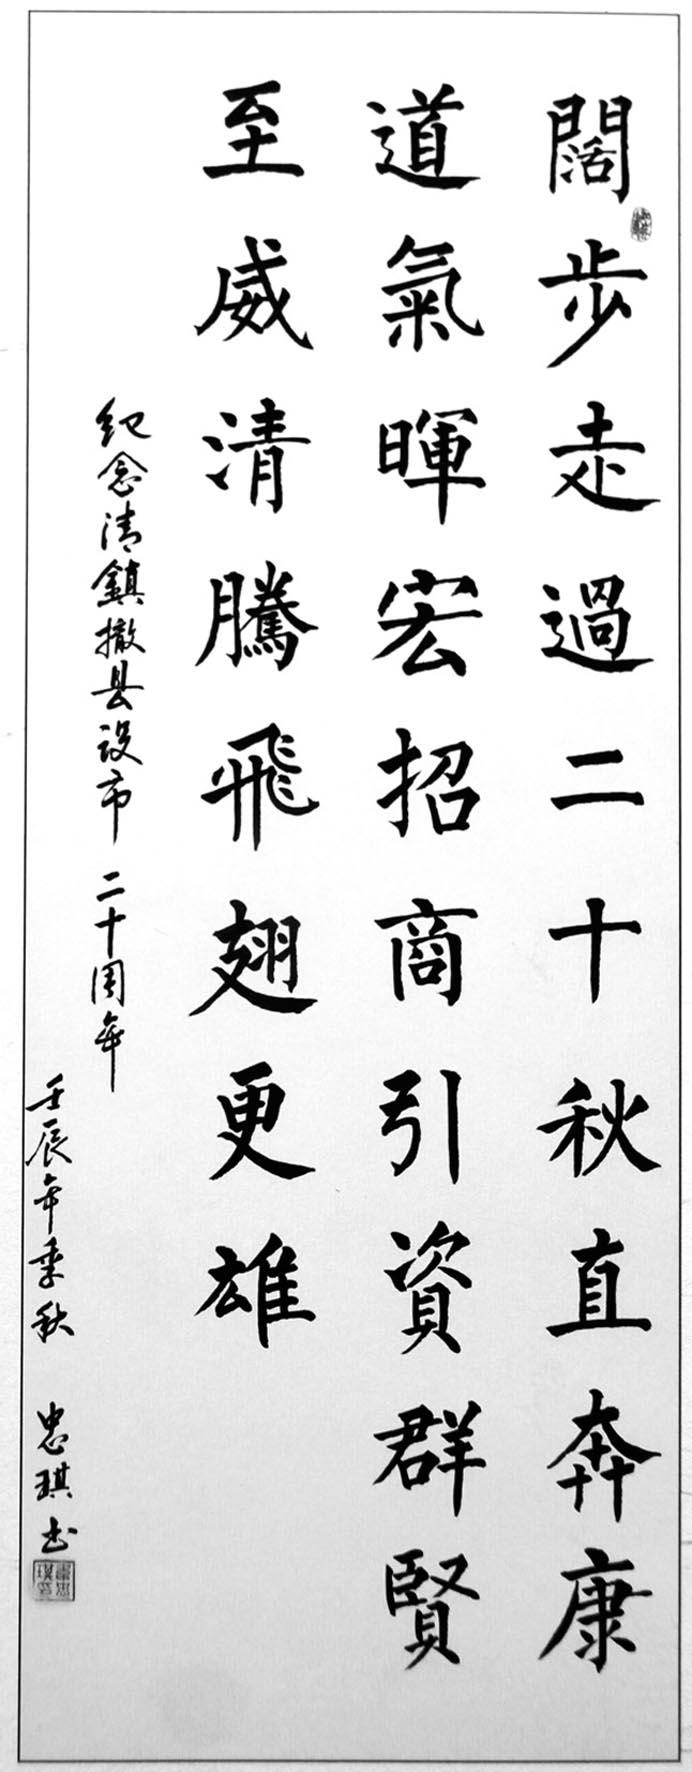 闊步走過二十秋直奔康
道氣暉宏招商引資群賢
至威清騰飛翅更雄
纪念清鎮撤县设市二十周年
壬辰年季秋 忠琪书